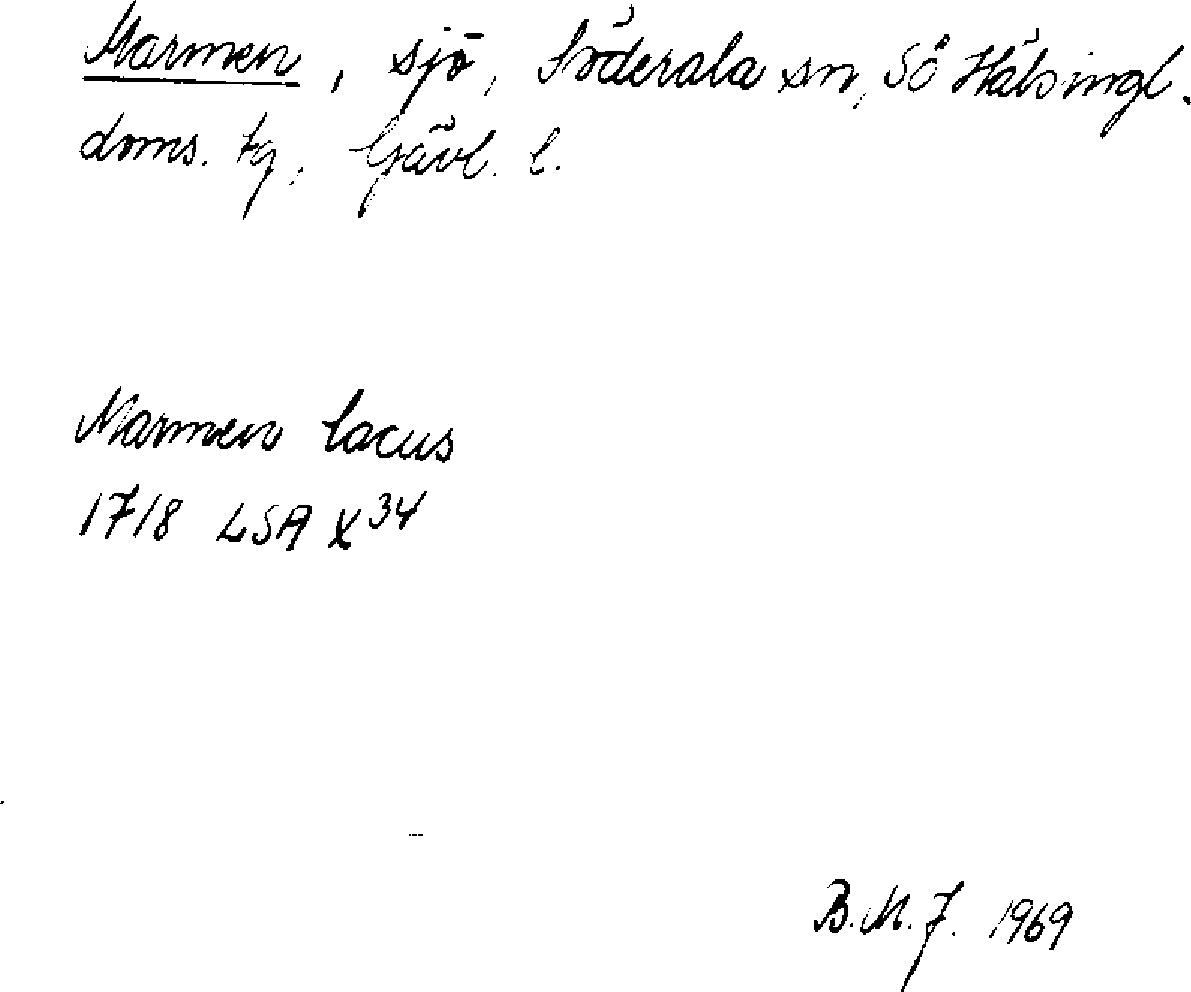 Marmen, sjö, Söderala sn, Sö Hälsingl.
doms. tg, Gävl. l.
Marmen lacus
1718 LSA X 34
B.M.J. 1969